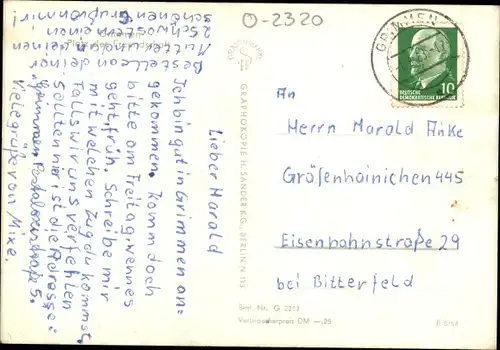 O-2320
GRIMMEN
DEUTSCHE
DEMOKRATISCHE REPUBLIK
10
An
Herrn Harald Anke
Gräfenhainichen 445
Eisenbahnstraße 29
bei Bitterfeld
GRAPHOKOPIE H. SANDER KG., BERLIN N 113
Best. Nr. G 2253
Verbraucherpreis DM —,25
Lieber Harald
Ich bin gut in Grimmen an=
gekommen. Komm doch
bitte am Freitag, wenn es
geht, früh. Schreibe mir
mit welchen Zug du kommst.
Falls wir uns verfehlen
sollten hier ist die Adresse:
Grimmen
Viele grüße von Mixe.
Bestelle an deiner
Mutter u. deinen
2 Schwestern einen
schönen Gruß von mir